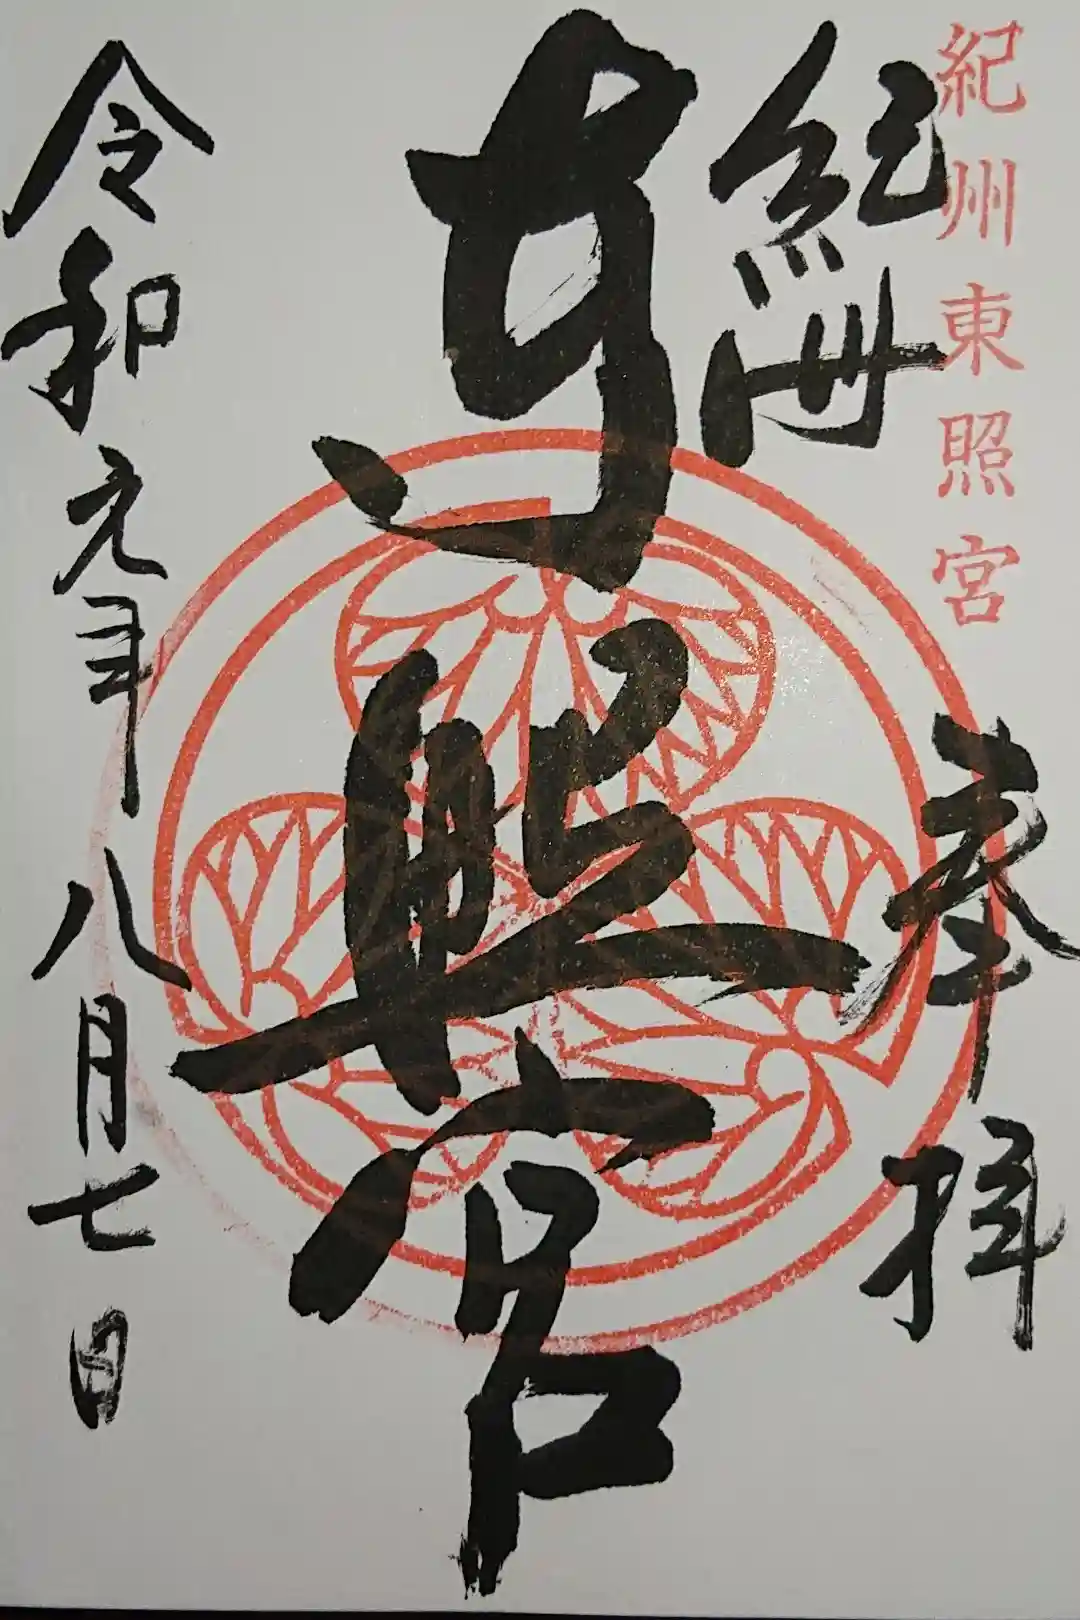 紀州東照宮
奉拝
紀州
東照宮
令和元年八月七日